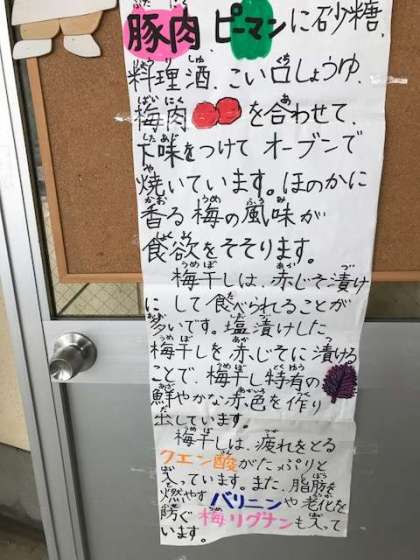 豚肉、ピーマンに砂糖、
料理酒、こい口しょうゆ、
梅肉を合わせて、
下味をつけてオーブンで
焼いています。ほのかに
香る梅の風味が
食欲をそそります。
梅干しは、赤じそ漬け
にして食べられることが
多いです。塩漬けした
梅干しを赤じそに漬ける
ことで、梅干し特有の
鮮やかな赤色を作り
出しています。
梅干しは、疲れをとる
クエン酸がたっぷりと
入っています。また、脂肪を
燃やすバリニンや老化を
防ぐ梅リグナンも入って
います。